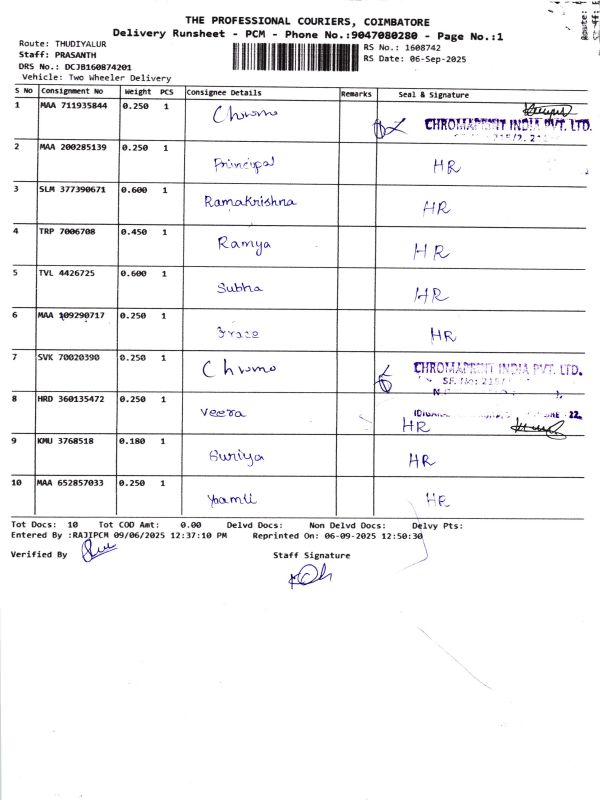 THE PROFESSIONAL COURIERS, COIMBATORE
Delivery Runsheet - PCM - Phone No.:9047080280 - Page No.:1
Route: THUDIYALUR
Staff: PRASANTH
DRS No.: DCJB160874201
Vehicle: Two Wheeler Delivery
RS No.: 1608742
RS Date: 06-Sep-2025
S No Consignment No Weight PCS Consignee Details Remarks Seal & Signature
1 MAA 711935844 0.250 1 Chromo
CHROMAPRINT INDIA PVT. LTD.
2 MAA 200285139 0.250 1 Principal HR
3 SLM 377390671 0.600 1 RamaKrishna HR
4 TRP 7006708 0.450 1 Ramya HR
5 TVL 4426725 0.600 1 Subha HR
6 MAA 109290717 0.250 1 HR
7 SVK 70020390 0.250 1 Chromo
CHROMAPRINT INDIA PVT. LTD.
SF. No: 215/
8 HRD 360135472 0.250 1 Veera HR
9 KMU 3768518 0.180 1 Suriya HR
10 MAA 652857033 0.250 1 HR
Tot Docs: 10 Tot COD Amt: 0.00 Delvd Docs: Non Delvd Docs: Delvy Pts:
Entered By :RAJIPCM 09/06/2025 12:37:10 PM Reprinted On: 06-09-2025 12:50:30
Verified By Staff Signature